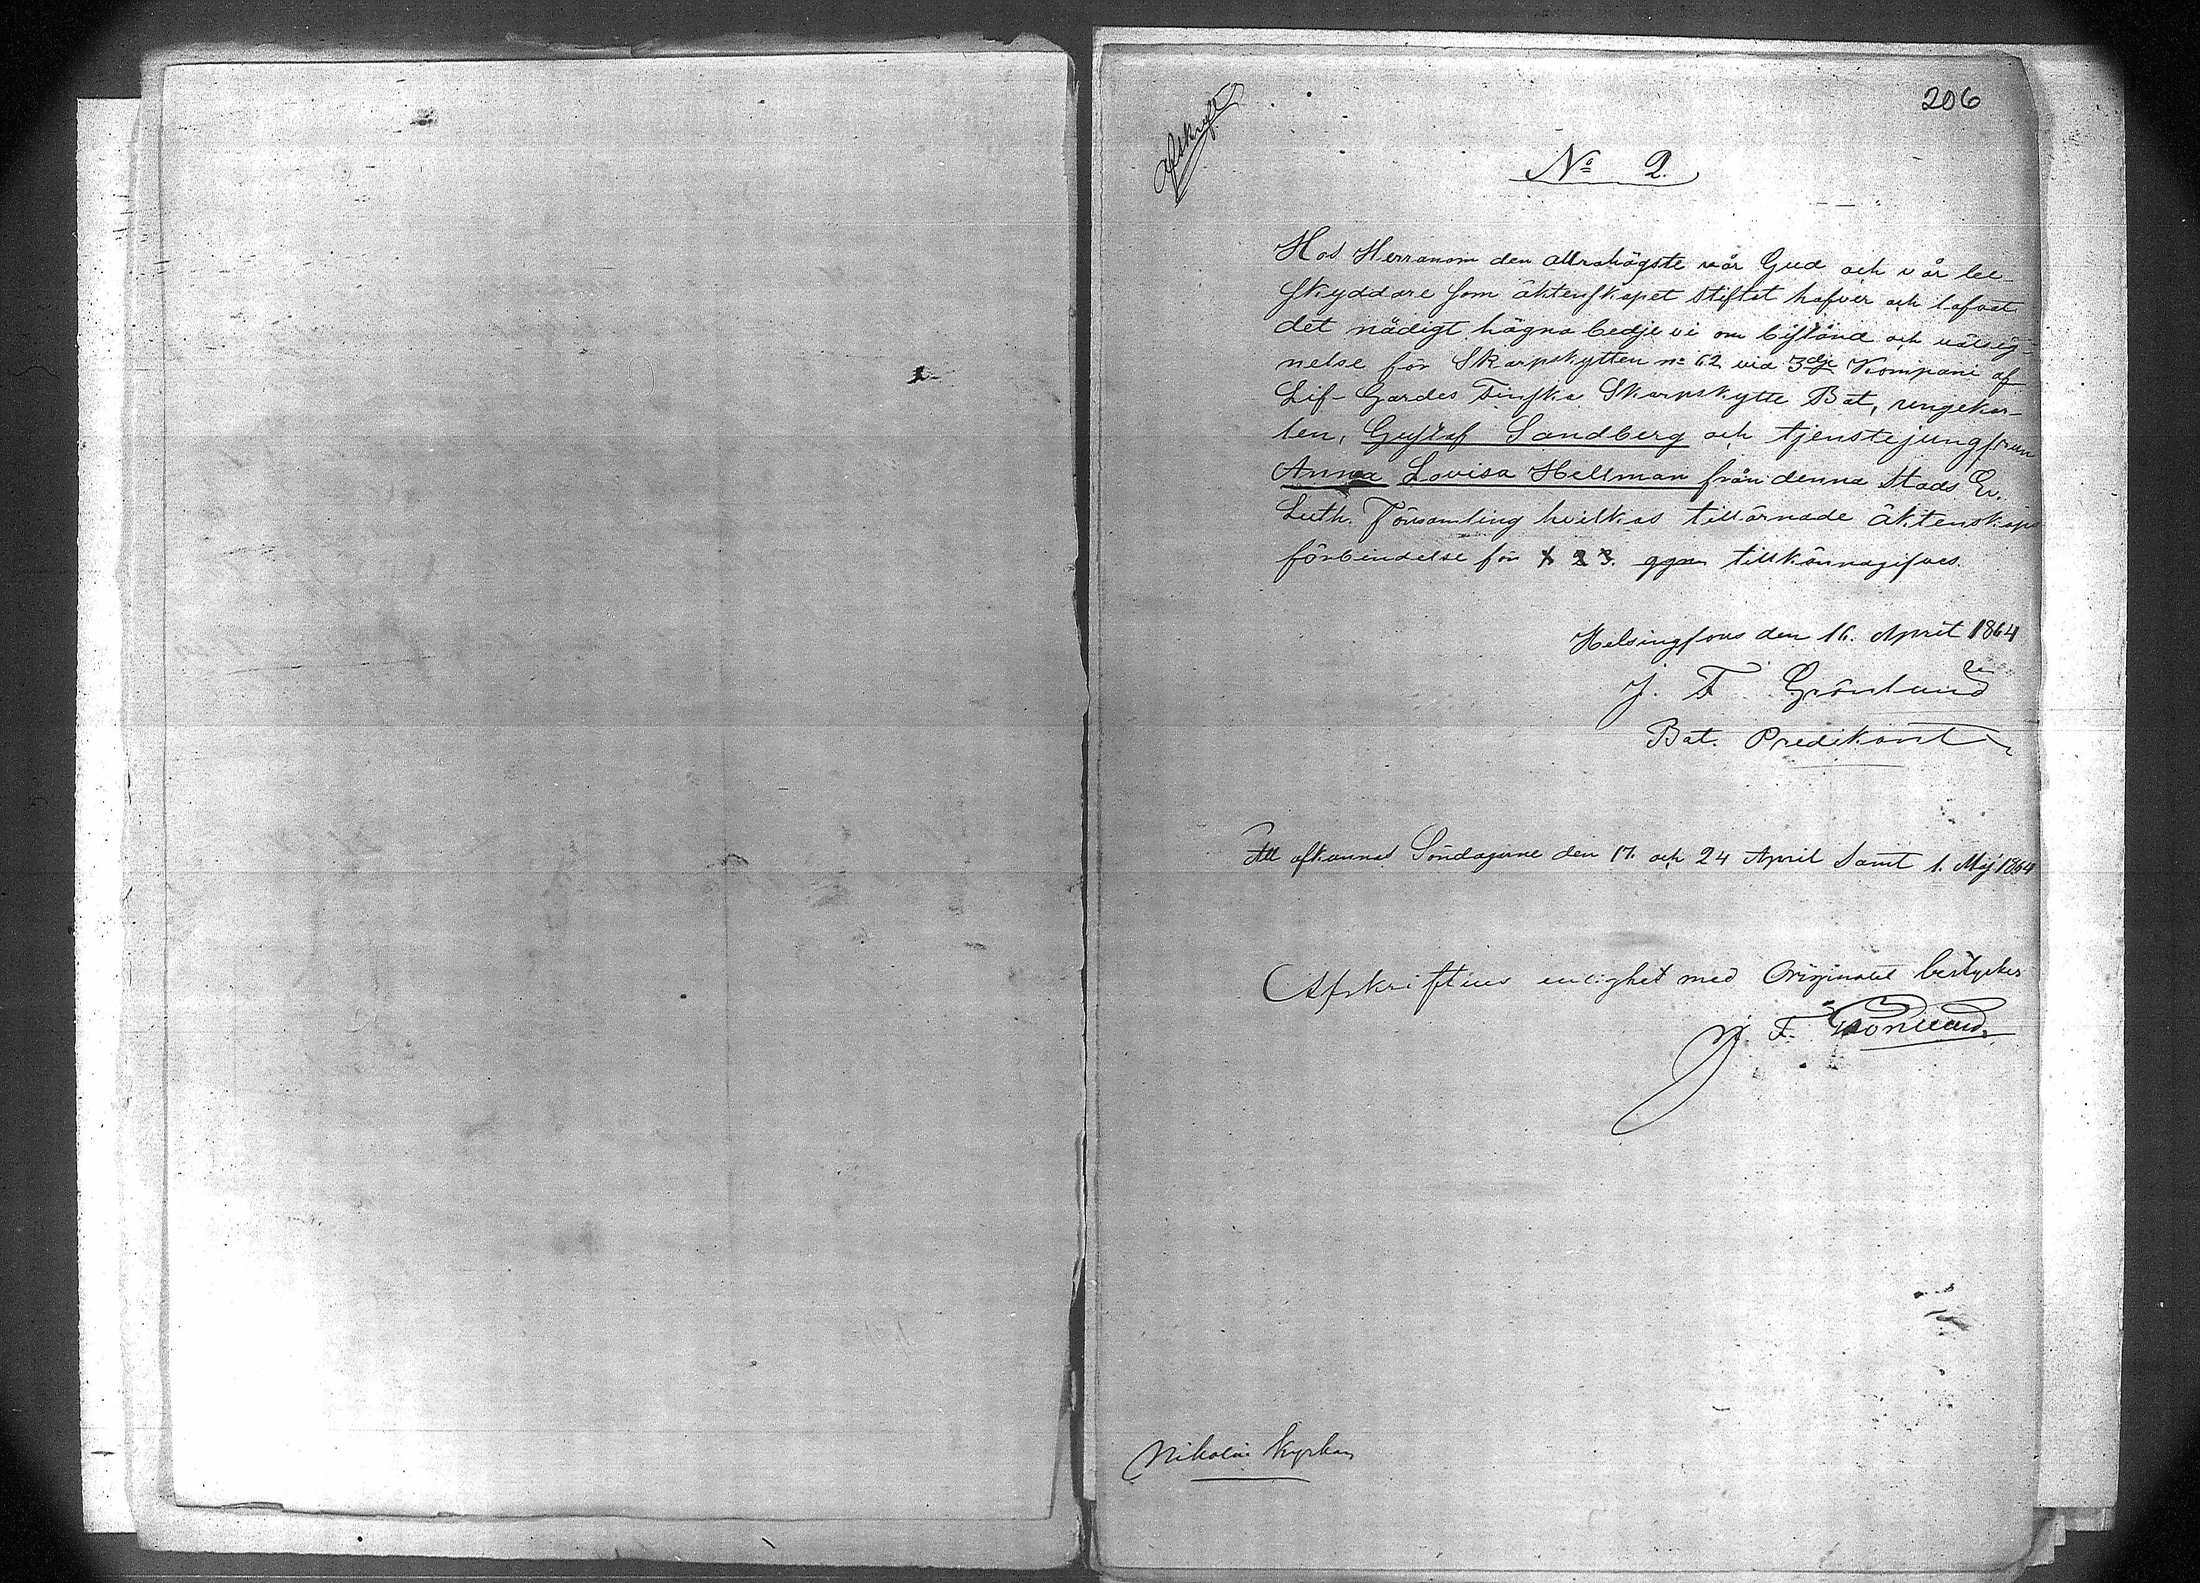 206
Afskrift
No 2.
Hos Herranom den allrahögste vår Gud och vår be-
skyddare som äktenskapet stiftat hafver och lofvat
det nådigt hägna bedje vi om bistånd och välsig-
nelse för Skarpskytten no 62 vid 3dje Kompani af
Lif-Gardes Finska Skarpskytte Bat, ungekar-
len, Gustaf Sandberg och tjenstejungfrun
Anna Lovisa Hellman från denna stads Ev.
Luth. Församling hvilkas tillärnade äktenskaps
förbindelse för 1 2 3. ggn tillkännagifves.
Helsingfors den 16. April 1864
J. F. Grönlund
Bat. Predikant
Att afkunnas Söndagarne den 17. och 24 April samt 1. Maj 1864
Afskriftens enlighet med Originalet bestyrker
J. F. Grönlund.
Nikolai kyrkan